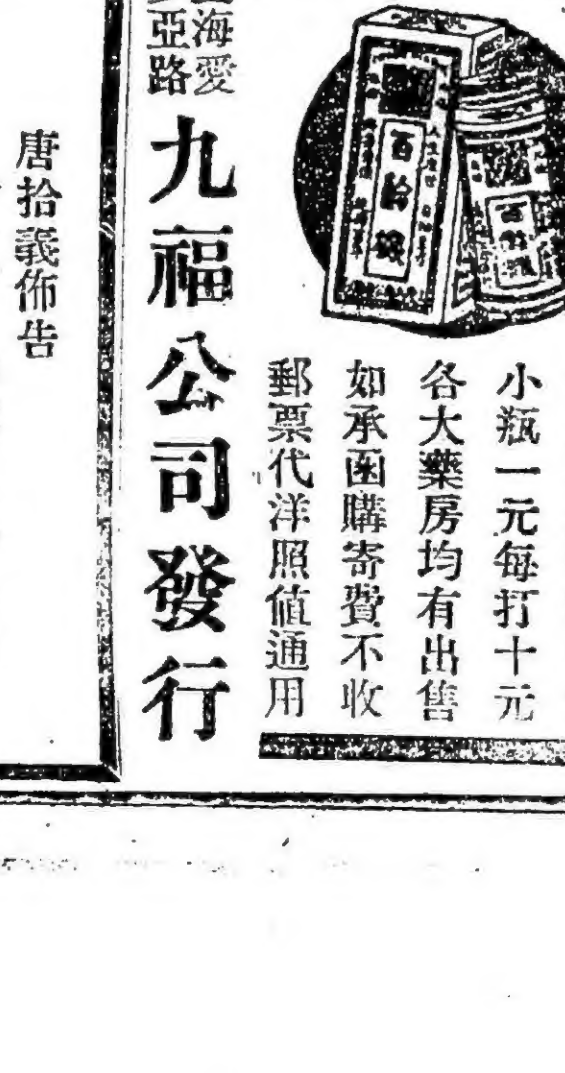 百齡機
百齡機
小瓶一元每打十元
各大藥房均有出售
如承函購寄費不收
郵票代洋照值通用
海愛
亞路
九福公司發行
唐拾義佈告